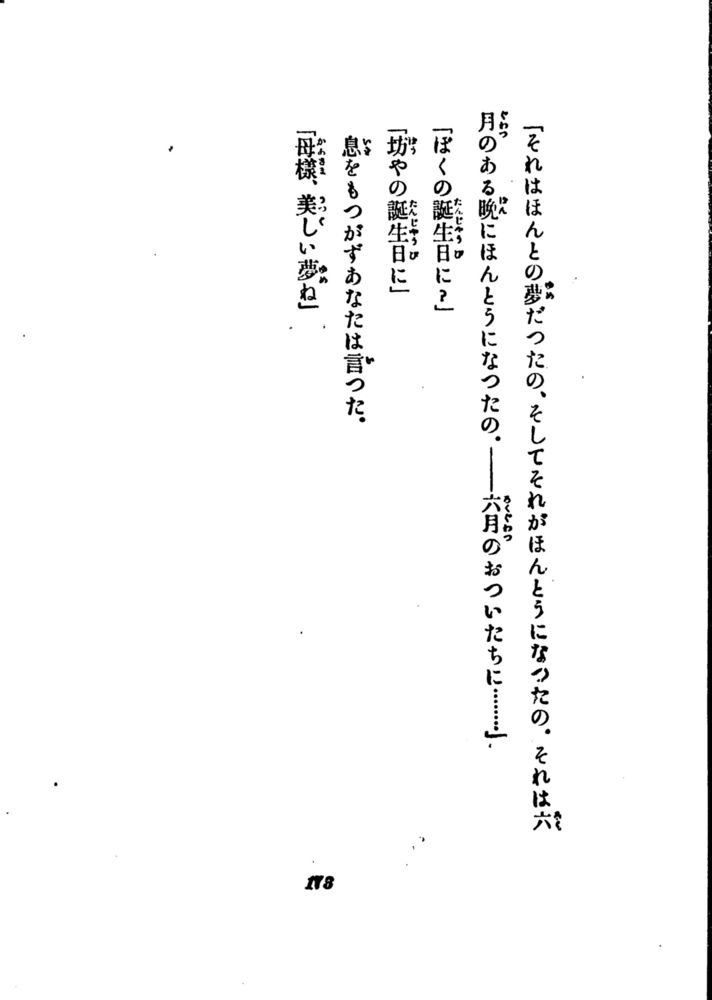 「それはほんとの夢だつたの、そしてそれがほんとうになつたの。それは六
月のある晩にほんとうになつたの。――六月のおついたちに………」
「ぼくの誕生日に?」
「坊やの誕生日に」
息をもつがずあなたは言つた。
「母樣、美しい夢ね」
173